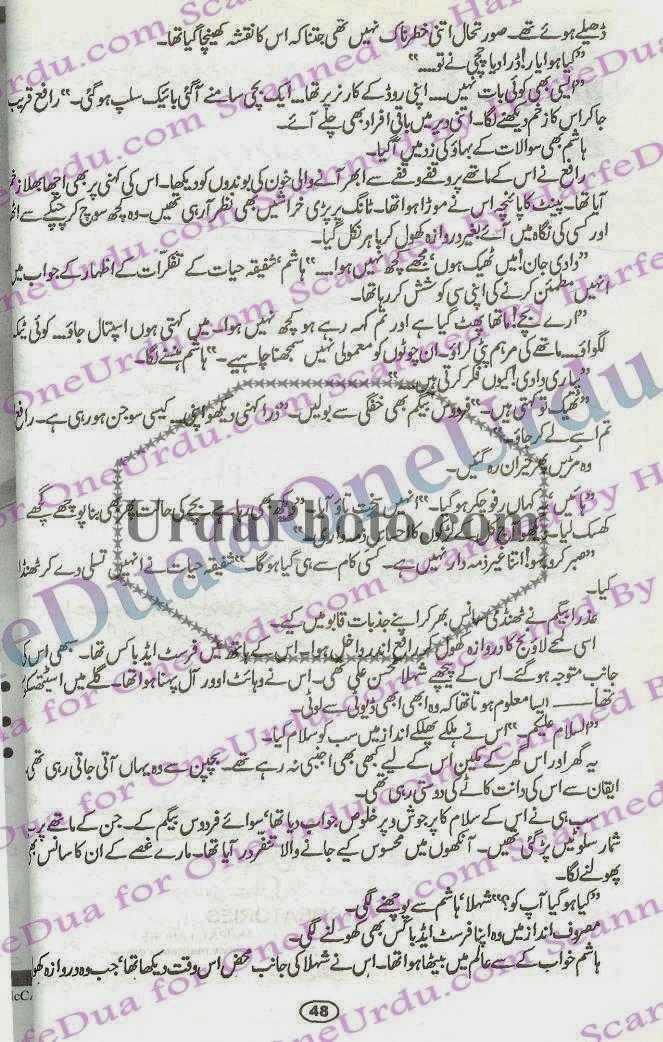 ڈھیلے ہوئے تھے۔ صورتحال اتنی خطرناک نہیں تھی جتنا کہ اس کا نقشہ کھینچا گیا تھا۔
”کیا ہوا یار! ڈرا دیا چچی نے تو....“
”ایسی بھی کوئی بات نہیں.... اپنی روڈ کے کارنر پر تھا.... ایک بچی سامنے آ گئی بائیک سلپ ہو گئی۔“ رافع قریب
جا کر اس کا زخم دیکھنے لگا۔ اتنی دیر میں باقی افراد بھی چلے آئے۔
ہاشم بھی سوالات کے بہاؤ کی زد میں آ گیا۔
رافع نے اس کے ماتھے پر وقفے وقفے سے ابھر آنے والی خون کی بوندوں کو دیکھا۔ اس کی کہنی پر بھی اچھا بھلا زخم
آیا تھا۔ پینٹ کا پائنچہ اس نے موڑا ہوا تھا۔ ٹانگ پر پڑی خراشیں بھی نظر آ رہی تھیں۔ وہ کچھ سوچ کر چپکے سے اٹھا
اور کسی کی نگاہ میں آئے بغیر دروازہ کھول کر باہر نکل گیا۔
”دادی جان! میں ٹھیک ہوں‘ مجھے کچھ نہیں ہوا....“ ہاشم‘ شفیقہ حیات کے تفکرات کے اظہار کے جواب میں
انہیں مطمئن کرنے کی اپنی سی کوشش کر رہا تھا۔
”ارے بچے! ماتھا پھٹ گیا ہے اور تم کہہ رہے ہو کچھ نہیں ہوا۔ میں کہتی ہوں اسپتال جاؤ.... کوئی ٹیکہ
لگواؤ.... ماتھے کی مرہم پٹی کراؤ۔ ان چوٹوں کو معمولی نہیں سمجھنا چاہیے۔“ ہاشم ہنسنے لگا۔
”پیاری دادی! کیوں فکر کرتی ہیں....“
”ٹھیک تو کہتی ہیں۔“ فردوس بیگم بھی خفگی سے بولیں۔ ”ذرا کہنی دیکھو اپنی.... کیسی سوجن ہو رہی ہے۔ رافع
تم اسے لے کر جاؤ۔“
وہ مڑیں پھر حیران رہ گئیں۔
”ہائیں‘ یہ کہاں رفوچکر ہو گیا۔“ انہیں سخت تاؤ آیا۔ بچے کی حالت پھر بھی بنا پوچھے گچھے
کھسک لیا۔
”صبر کرو بہو! اتنا غیر ذمہ دار نہیں ہے۔ کسی کام سے ہی گیا ہو گا۔“ شفیقہ حیات نے انہیں تسلی دے کر ٹھنڈا
کیا۔
عذرا بیگم نے ٹھنڈی سانس بھر کر اپنے جذبات قابو میں کیے۔
اسی لمحے لاؤنج کا دروازہ کھول کر رافع اندر داخل ہوا۔ اس کے ہاتھ میں فرسٹ ایڈ باکس تھا۔ سبھی اس کی
جانب متوجہ ہو گئے۔ اس کے پیچھے شہلا محسن علی تھی۔ اس نے وہائٹ اوور آل پہنا ہوا تھا۔ گلے میں
تھا —— ایسا معلوم ہوتا تھا کہ وہ ابھی ابھی ڈیوٹی سے لوٹی۔
”السلام علیکم۔“ اس نے ہلکے پھلکے انداز میں سب کو سلام کیا۔
یہ گھر اور اس گھر کے مکین اس کے لیے کبھی بھی اجنبی نہ رہے تھے۔ بچپن سے وہ یہاں آتی جاتی رہی تھی
ایقان سے اس کی دانت کاٹے کی دوستی رہی تھی۔
سب ہی نے اس کے سلام کا پرجوش و پرخلوص جواب دیا تھا‘ سوائے فردوس بیگم کے۔ جن کے ماتھے پر بے
شمار سلوٹیں پڑ گئی تھیں۔ آنکھوں میں محسوس کیے جانے والا تنفر در آیا تھا۔ مارے غصے کے ان کا سانس بھی
پھولنے لگا۔
”کیا ہو گیا آپ کو؟“ شہلا‘ ہاشم سے پوچھنے لگی۔
مصروف انداز میں وہ اپنا فرسٹ ایڈ باکس بھی کھولنے لگی۔
ہاشم خواب کے سے عالم میں بیٹھا ہوا تھا۔ اس نے شہلا کی جانب محض اس وقت دیکھا تھا‘ جب وہ دروازہ کھو
48
UrduPhoto.com